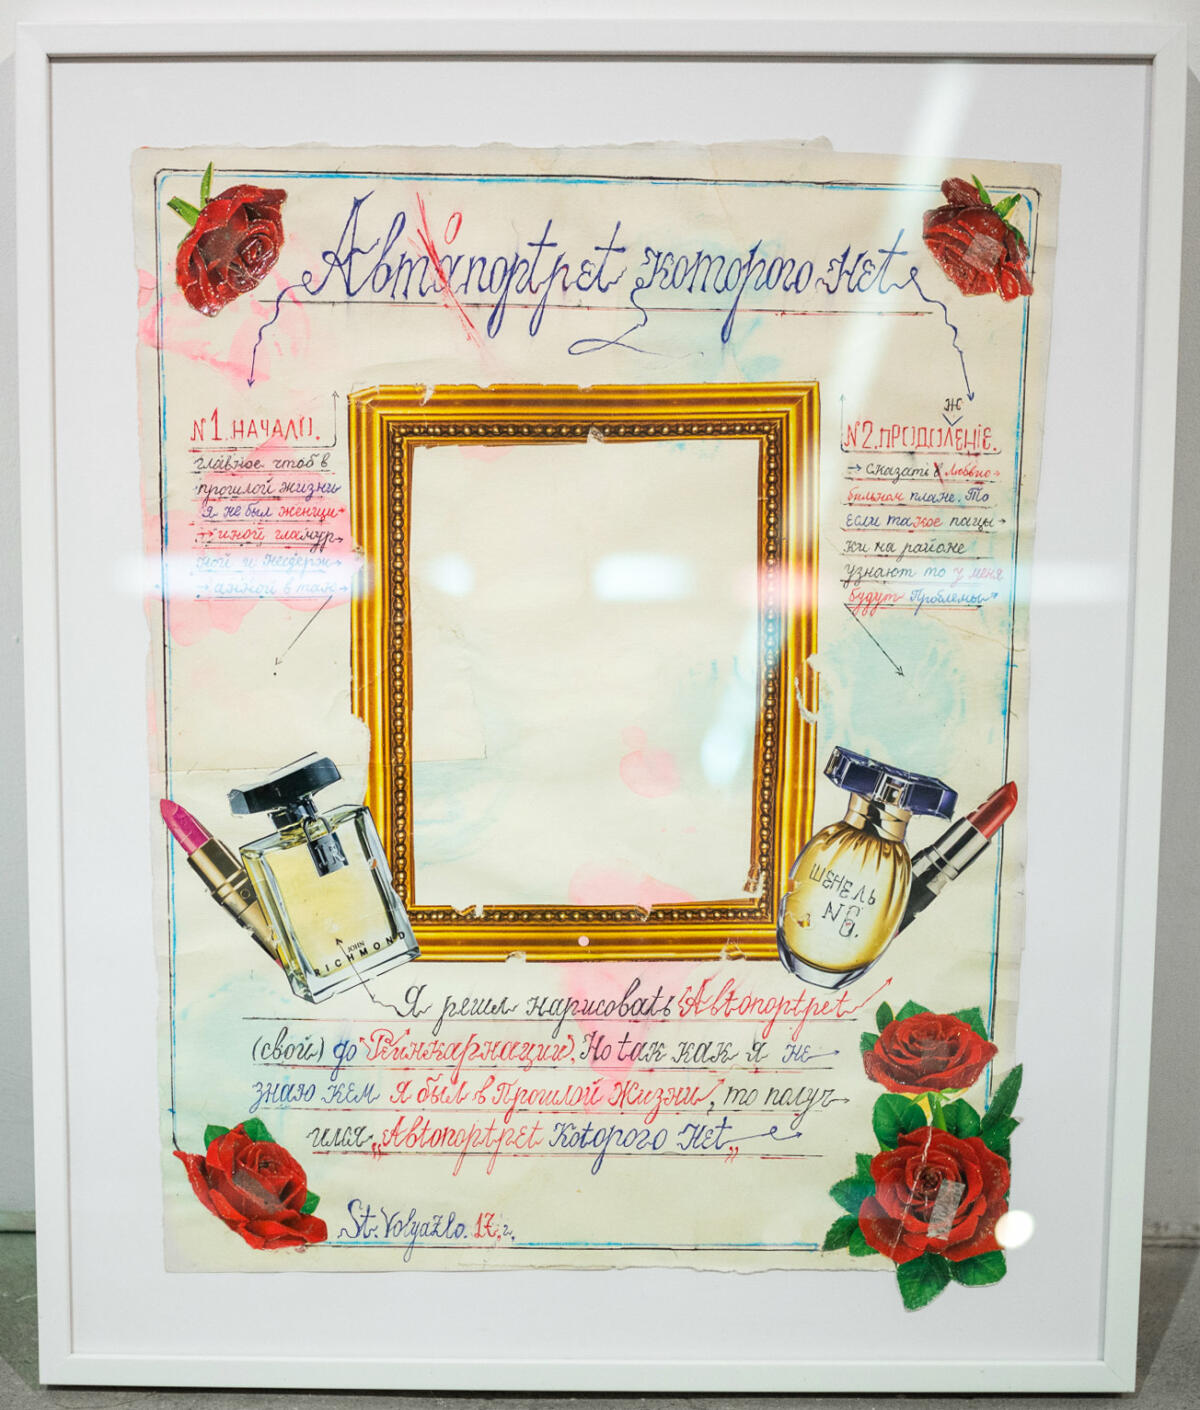 Автопортрет которого нет
№1. НАЧАЛО.
главное чтоб в
прошлой жизни
я не был женщи
иной гламур
ной и несдерж
анной в таю
Ж
№2. ПРОДОЛЕНІЕ.
сказаті в любвио
бильном плане. То
если такое пацы
ки на районе
узнают то у меня
будут Проблемы
JOHN
RICHMOND
ШЕНЕЛЬ
№6.
Я решл нарисовать Автопортрет
(свой) до Реинкарнации. Но так как я не
знаю кем я был в Прошлой Жизни, то получ
ился „Автопортрет Которого Нет„
St. Volyazlo. 17.г.